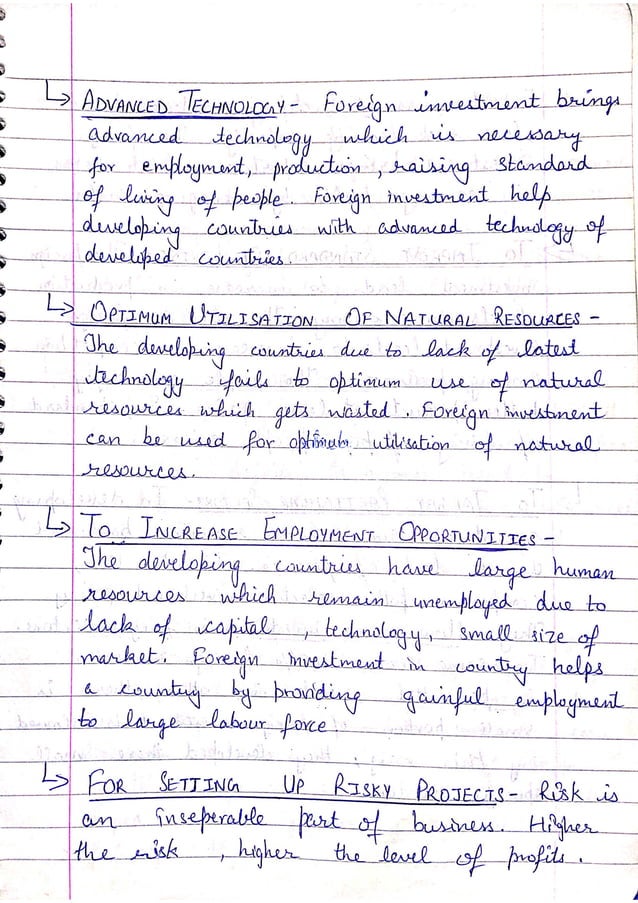 ↳ ADVANCED TECHNOLOGY - Foreign investment brings
advanced technology which is necessary
for employment, production, raising standard
of living of people. Foreign investment help
developing countries with advanced technology of
developed countries.
↳ OPTIMUM UTILISATION OF NATURAL RESOURCES -
The developing countries due to lack of latest
technology fails to optimum use of natural
resources which gets wasted. Foreign investment
can be used for optimum utilisation of natural
resources.
↳ TO INCREASE EMPLOYMENT OPPORTUNITIES -
The developing countries have large human
resources which remain unemployed due to
lack of capital, technology, small size of
market. Foreign investment in country helps
a country by providing gainful employment
to large labour force
↳ FOR SETTING UP RISKY PROJECTS - Risk is
an inseperable part of business. Higher
the risk, higher the level of profits.